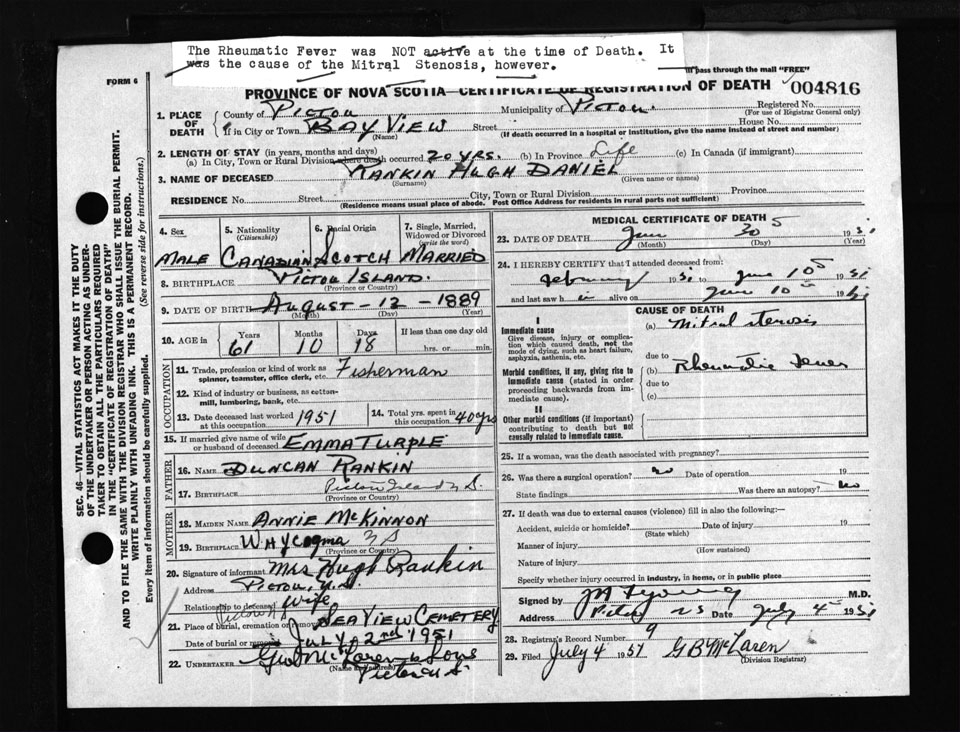 The Rheumatic Fever was NOT active at the time of Death. It
was the cause of the Mitral Stenosis, however.
FORM 6
in pass through the mail "FREE"
PROVINCE OF NOVA SCOTIA—CERTIFICATE OF REGISTRATION OF DEATH 004816
1. PLACE OF DEATH { County of PICTOU Municipality of PICTOU. Registered No.
(For use of Registrar General only)
If in City or Town BAY VIEW Street House No.
(Name) (If death occurred in a hospital or institution, give the name instead of street and number)
2. LENGTH OF STAY (in years, months and days)
(a) In City, Town or Rural Division where death occurred 20 YRS. (b) In Province Life (c) In Canada (if immigrant)
3. NAME OF DECEASED RANKIN HUGH DANIEL
(Surname) (Given name or names)
RESIDENCE No. Street City, Town or Rural Division Province
(Residence means usual place of abode. Post Office Address for residents in rural parts not sufficient)
4. Sex 5. Nationality (Citizenship) 6. Racial Origin 7. Single, Married, Widowed or Divorced (write the word)
MALE CANADIAN SCOTCH MARRIED
8. BIRTHPLACE PICTOU ISLAND.
(Province or Country)
9. DATE OF BIRTH AUGUST - 12 - 1889
(Month) (Day) (Year)
10. AGE in Years Months Days If less than one day old
61 10 18 hrs. or min.
OCCUPATION
11. Trade, profession or kind of work as spinner, teamster, office clerk, etc. Fisherman
12. Kind of industry or business, as cotton-mill, lumbering, bank, etc.
13. Date deceased last worked at this occupation 1951 14. Total yrs. spent in this occupation 40 yrs
15. If married give name of wife or husband of deceased EMMA TURPLE
FATHER
16. NAME DUNCAN RANKIN
17. BIRTHPLACE Pictou Island N S.
(Province or Country)
MOTHER
18. MAIDEN NAME ANNIE McKINNON
19. BIRTHPLACE WHYCOGMA N S
(Province or Country)
20. Signature of informant Mrs Hugh Rankin
Address PICTOU, N.S.
Relationship to deceased Wife
21. Place of burial, cremation or removal SEA VIEW CEMETERY
Date of burial or removal JULY 2nd 1951
22. UNDERTAKER McLaren & Sons
(Name and address)
Pictou N S.
MEDICAL CERTIFICATE OF DEATH
23. DATE OF DEATH June 30 1951
(Month) (Day) (Year)
24. I HEREBY CERTIFY that I attended deceased from:
February 1951 to June 10 1951
and last saw h im alive on June 10 1951
CAUSE OF DEATH
I
Immediate cause
Give disease, injury or complication which caused death, not the mode of dying, such as heart failure, asphyxia, asthenia, etc.
(a) Mitral stenosis
due to
Morbid conditions, if any, giving rise to immediate cause (stated in order proceeding backwards from immediate cause).
(b) Rheumatic Fever
due to
(c)
II
Other morbid conditions (if important) contributing to death but not causally related to immediate cause.
25. If a woman, was the death associated with pregnancy?
26. Was there a surgical operation? no Date of operation 19
State findings Was there an autopsy? no
27. If death was due to external causes (violence) fill in also the following:—
Accident, suicide or homicide? Date of injury 19
(State which)
Manner of injury
(How sustained)
Nature of injury
Specify whether injury occurred in industry, in home, or in public place
Signed by M.D.
Address Pictou N S Date July 4 1951
28. Registrar's Record Number 9
29. Filed July 4 1951 G B McLaren
(Division Registrar)
SEC. 46—VITAL STATISTICS ACT MAKES IT THE DUTY
OF THE UNDERTAKER OR PERSON ACTING AS UNDER-
TAKER TO OBTAIN ALL THE PARTICULARS REQUIRED
IN THE "CERTIFICATE OF REGISTRATION OF DEATH"
AND TO FILE THE SAME WITH THE DIVISION REGISTRAR WHO SHALL ISSUE THE BURIAL PERMIT.
WRITE PLAINLY WITH UNFADING INK. THIS IS A PERMANENT RECORD.
Every item of information should be carefully supplied. (See reverse side for instructions.)